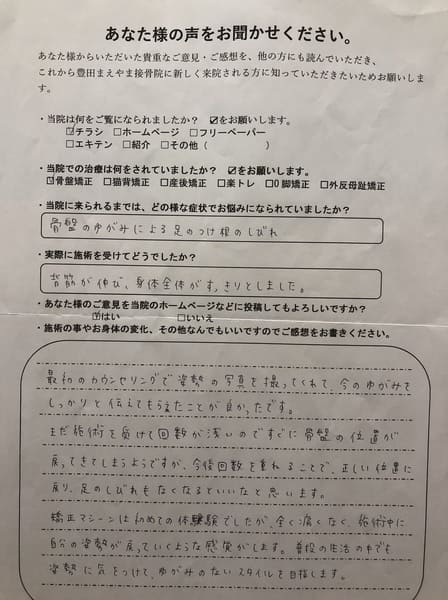 あなた様の声をお聞かせください。
あなた様からいただいた貴重なご意見・ご感想を、他の方にも読んでいただき、
これから豊田まえやま接骨院に新しく来院される方に知っていただきたいためお願いしま
す。
・当院は何をご覧になられましたか？ ☑をお願いします。
☑チラシ □ホームページ □フリーペーパー
□エキテン □紹介 □その他（ ）
・当院での治療は何をされていましたか？ ☑をお願いします。
☑骨盤矯正 □猫背矯正 □産後矯正 □楽トレ □O脚矯正 □外反母趾矯正
・当院に来られるまでは、どの様な症状でお悩みになられていましたか？
骨盤のゆがみによる足のつけ根のしびれ
・実際に施術を受けてどうでしたか？
背筋が伸び、身体全体がすっきりとしました。
・あなた様のご意見を当院のホームページなどに投稿してもよろしいですか？
☑はい □いいえ
・施術の事やお身体の変化、その他なんでもいいですのでご感想をお書きください。
最初のカウンセリングで姿勢の写真を撮ってくれて、今のゆがみを
しっかりと伝えてもらえたことが良かったです。
まだ施術を受けて回数が浅いのですぐに骨盤の位置が
戻ってきてしまうようですが、今後回数を重ねることで、正しい位置に
戻り、足のしびれもなくなるといいなと思います。
矯正マシーンは初めての体験でしたが、全く痛くなく、施術中に
自分の姿勢が戻っていくような感覚がします。普段の生活の中でも
姿勢に気をつけて、ゆがみのないスタイルを目指します。